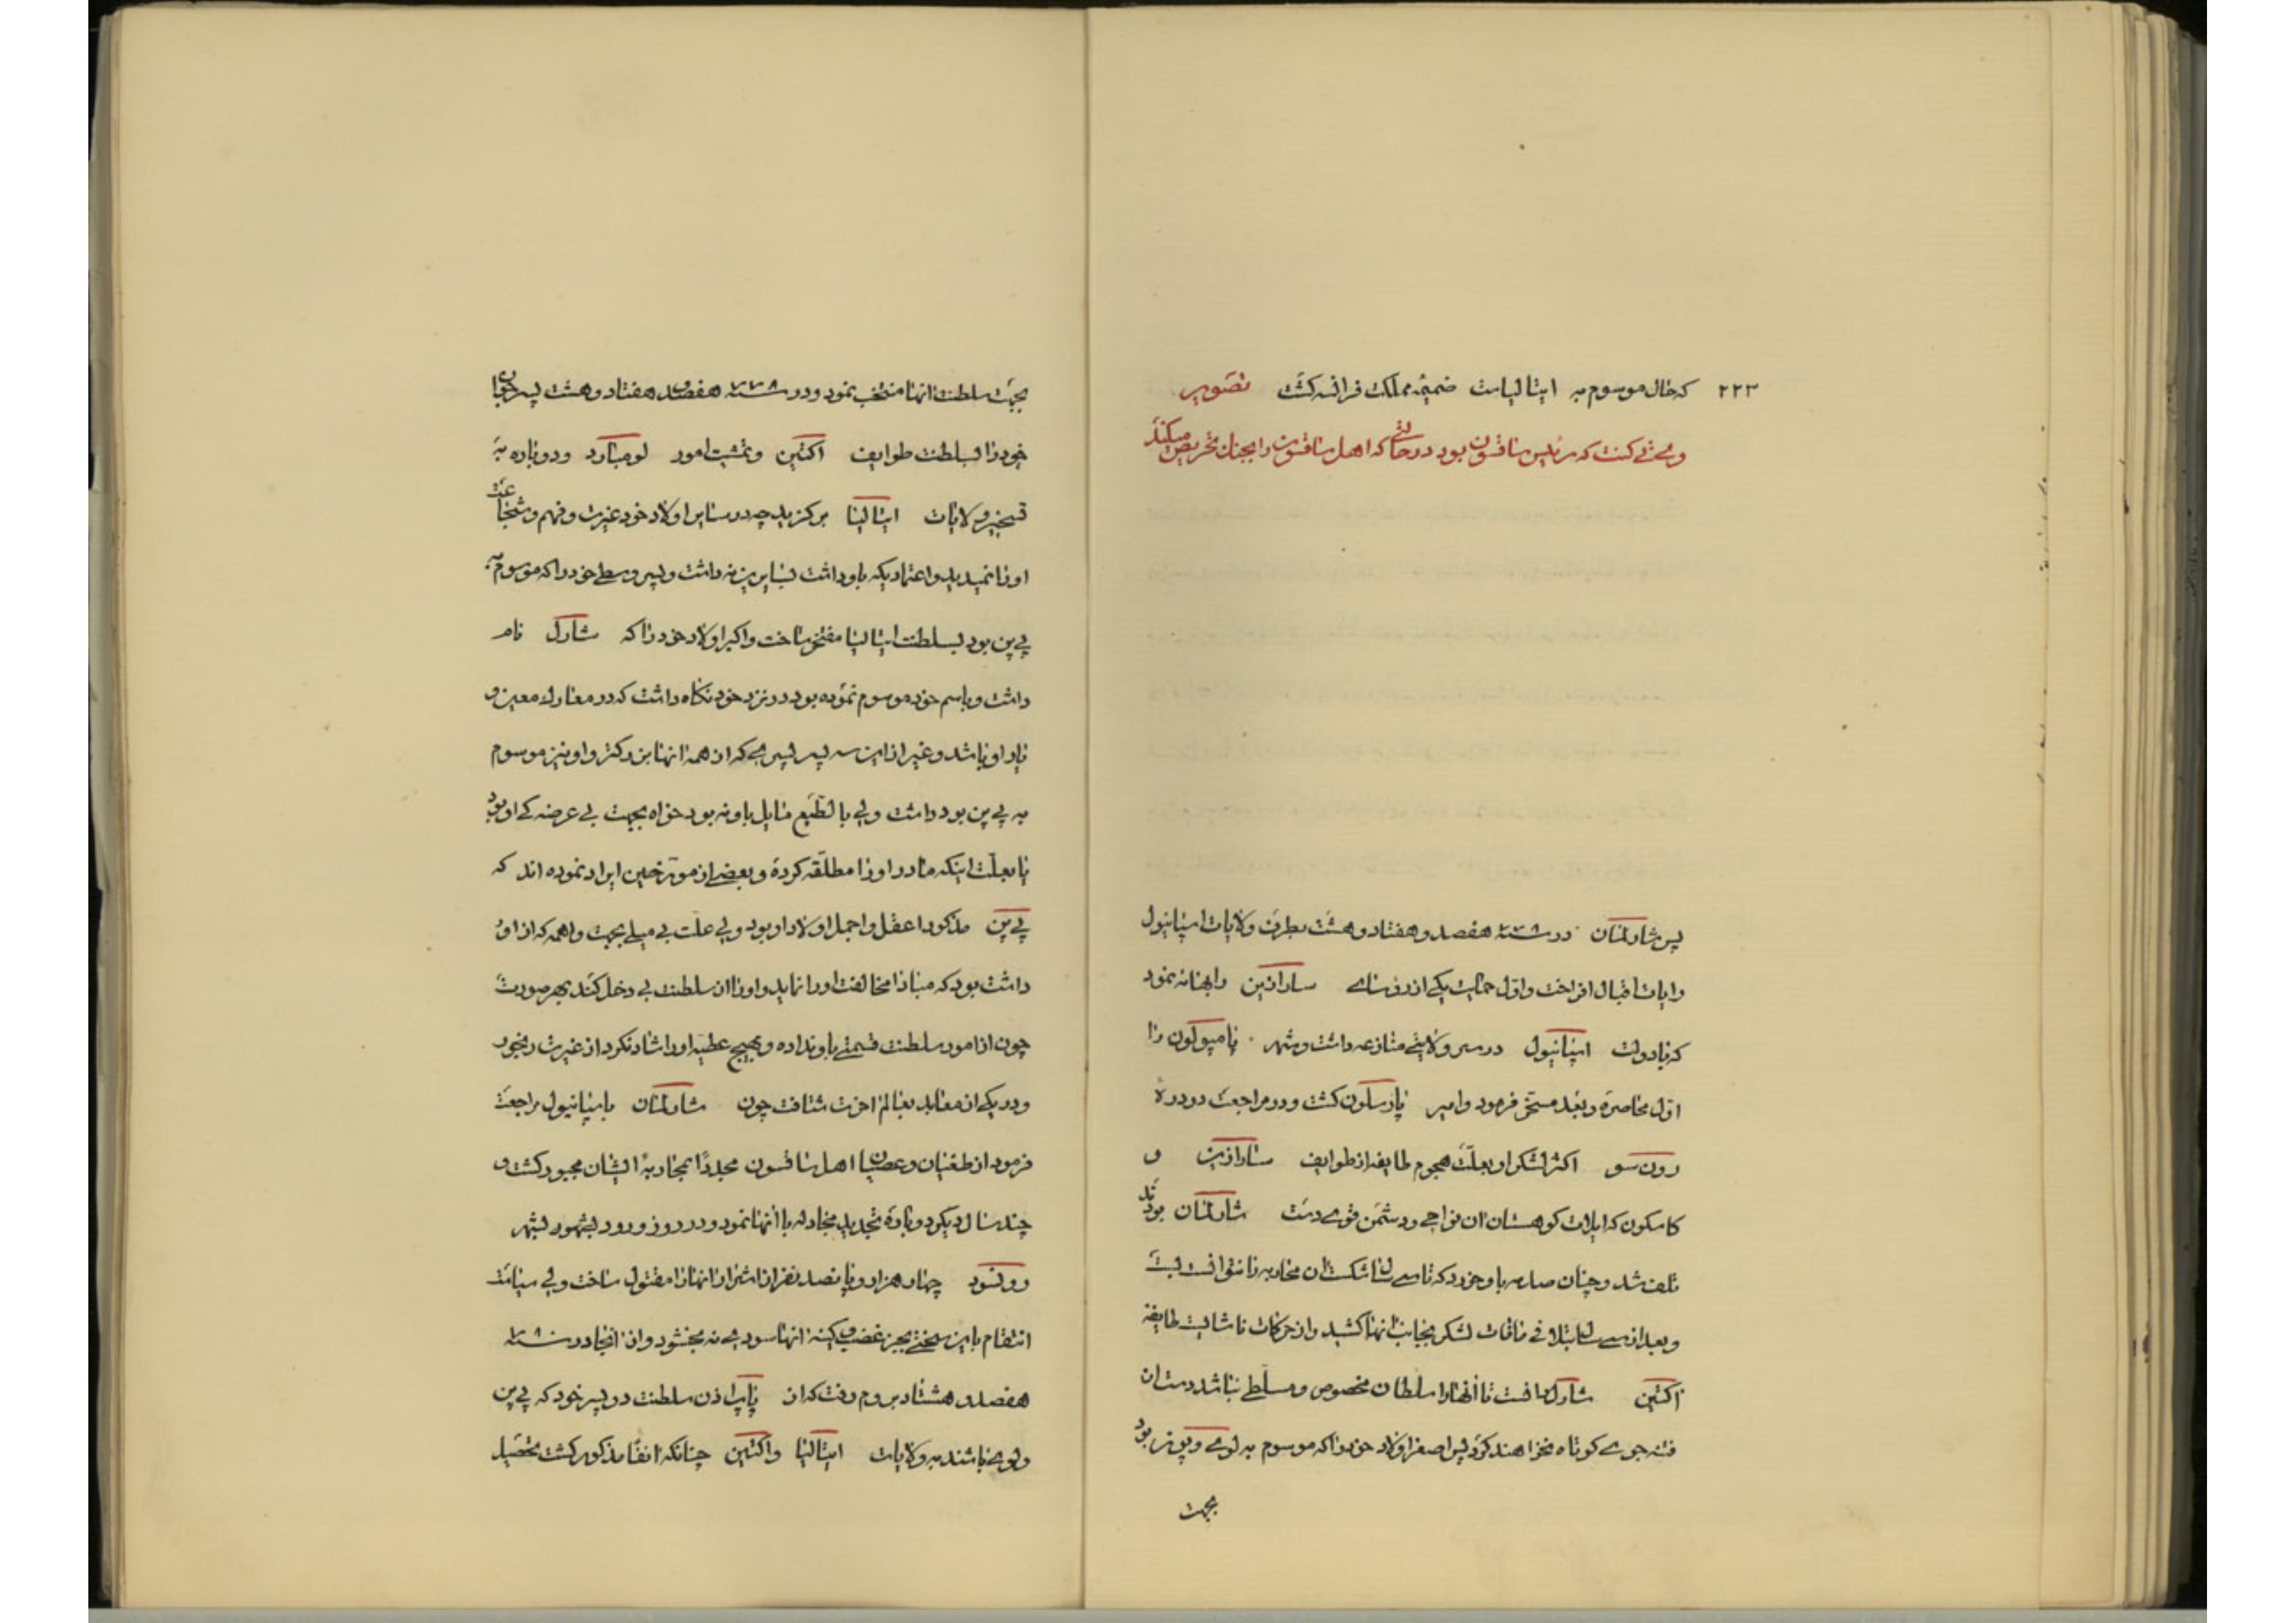 ۲۲۳ که حال موسوم به ایتالیاست ضمیمه مملکت فرانسه کشت تصویر
کنت که رئیس ساقسون بود در حالتی که اهل ساقسون را بجنك تحریص میکند
پس شارلمان در سنه ۷۷۸ هفصد و هفتاد و هشت بطرف ولایات اسپانیول
رایات اقبال افراخت و اول حمایت یکی از رؤسای سارازین را بهانه نمود
که با دولت اسپانیول در سر ولایتی منازعه داشت و شهر پامپولون را
اول محاصره و بعد مسخر فرمود و امیر بارسلون کشت و در مراجعت در دره
رون سو اکثر لشکر او بعلت هجوم طایفه از طوایف سارازین و
کاسکون که ایلات کوهستان ان نواحی و دشمن قوی دست شارلمان بودند
تلف شد و چنان صدمه باو خورد که تا سی سال شکست ان محاربه را نتوانست بست
و بعد از سی سال بتلافی مافات لشکر بجانب انها کشید و از حرکات ناشایست طایفه
اکتین شارل دانست تا انها را سلطان مخصوص و مسلطی نباشد دست از
فتنه جوی کوتاه نخواهند کرد پس اصغر اولاد خود را که موسوم به لوی و بونر بود
بجهت
بجهت سلطنت انها منتخب نمود و در سنه ۷۷۸ هفصد و هفتاد و هشت پسر جوان
خود را بسلطنت طوایف اکتین و تمشیت امور لومبارد و دوباره به
تسخیر ولایات ایتالیا برکزید چه در سایر اولاد خود غیرت و فهم و شجاعت
او را نمیدید و اعتمادیکه باو داشت بسایرین نه داشت و پسر وسطی خود را که موسوم به
پی پن بود بسلطنت ایتالیا مفتخر ساخت و اکبر اولاد خود را که شارل نام
داشت و باسم خود موسوم نموده بود در نزد خود نکاه داشت که در معارك معین و
یار او باشد و غیر از این سه پسر پسری که از همه انها بزرکتر و او نیز موسوم
به پی پن بود داشت ولی بالطبع مایل باو نه بود خواه بجهت بی عرضه کی او بود
یا بعلت اینکه مادر او را مطلقه کرده و بعضی از مورخین ایراد نموده اند که
پی پن مذکور اعقل و اجمل اولاد او بود ولی علت بی میلی بجهت واهمه که از او
داشت بود که مبادا مخالفت او را نماید و او را از سلطنت بی دخل کند بهر صورت
چون از امور سلطنت قسمتی باو نداده و بهیچ عطیه او را شاد نکرد از غیرت رنجور
و در یکی از معابد بعالم اخرت شتافت چون شارلمان باسپانیول مراجعت
فرمود از طغیان و عصیان اهل ساقسون مجددا بمحاربه ایشان مجبور کشت و
چند سال دیکر دوباره تجدید مجادله با انها نمود و در روز ورود بشهور بشهر
ورنسود چهار هزار و پانصد نفر از اشرار انها را مقتول ساخت ولی سیاست
انتقام باین سختی بجز غضب و کینه انها سودی نه بخشود و از انجا در سنه ۷۸۰
هفصد و هشتاد بروم رفت که از پاپ اذن سلطنت دو پسر خود که پی پن
و لوی باشند به ولایات ایتالیا و اکتین چنانکه انفا مذکور کشت تحصیل